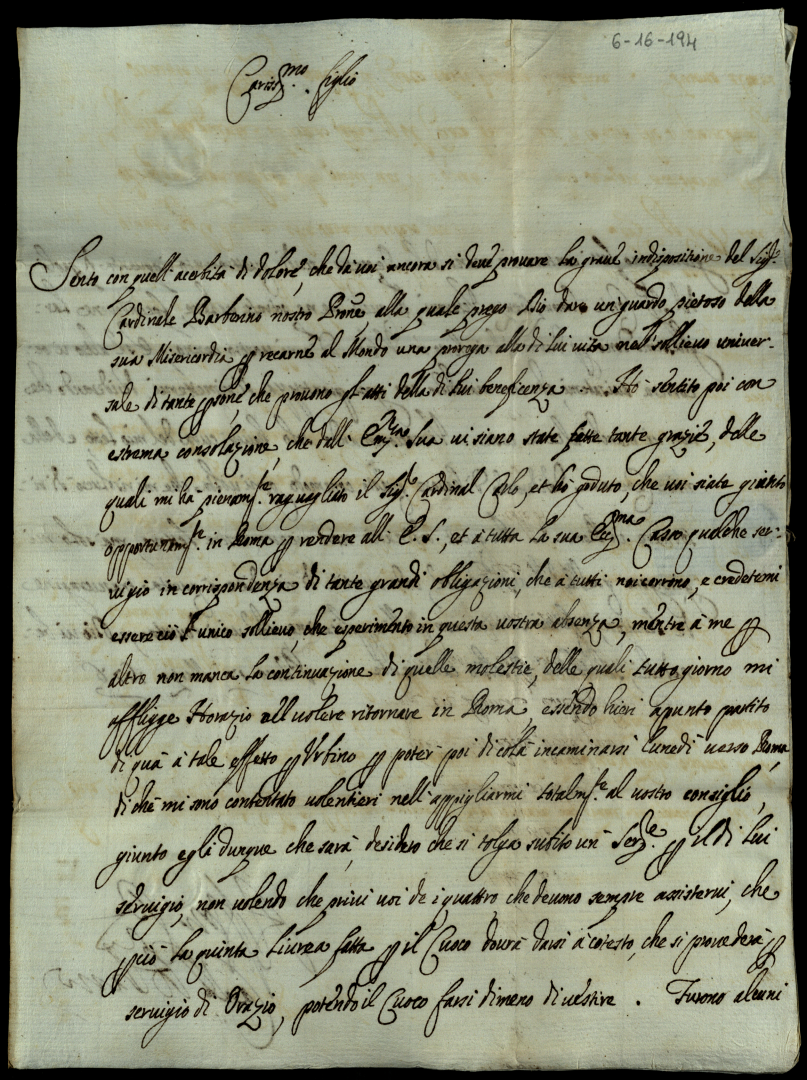 6-16-194
Cariss.mo figlio
Sento con quell'acerbità di dolore, che da voi ancora si deve provare la grave indispositione del Sig.r
Cardinale Barberino nostro Prone, alla quale prego Dio dare un guardo pietoso della
sua Misericordia p recarne al Mondo una proroga alla di lui vita nell'sollievo univer-
sale di tante psone, che provono gl'atti della di lui beneficenza. Hò sentito poi con
estrema consolazione, che dall' Emza Sua vi siano state fatte tante grazie, delle
quali mi ha pienamte raguagliato il Sig.r Cardinal Carlo, et hò goduto, che voi siate giunto
opportunamte in Roma p rendere all' E. S., et à tutta la sua Eccma Casa qualche ser-
vigio in corrispondenza di tante grandi obligazioni, che à tutti noi corrono, e credetemi
essere ciò l'unico sollievo, che esperimento in questa vostra absenza, mentre à me p
altro non manca la continuazione di quelle molestie, delle quali tutto giorno mi
affligge Horazio nell volere ritornare in Roma, essendo hieri apunto partito
di quà à tale effetto p Urbino p poter poi di colà incaminarsi lunedì verso Roma,
di chè mi sono contentato volentieri nell'appigliarmi totalmte al vostro consiglio,
giunto egli dunque che sarà, desidero che si tolga subito un Serre p il di lui
servigio, non volendo che privi voi de i quattro che devono sempre assistervi, che
pciò la quinta livrea fatta p il Cuoco dovrà darsi à cotesto, che si provederà p
servigio di Orazio, potendo il Cuoco farsi dimeno di vestire. Furono alcuni